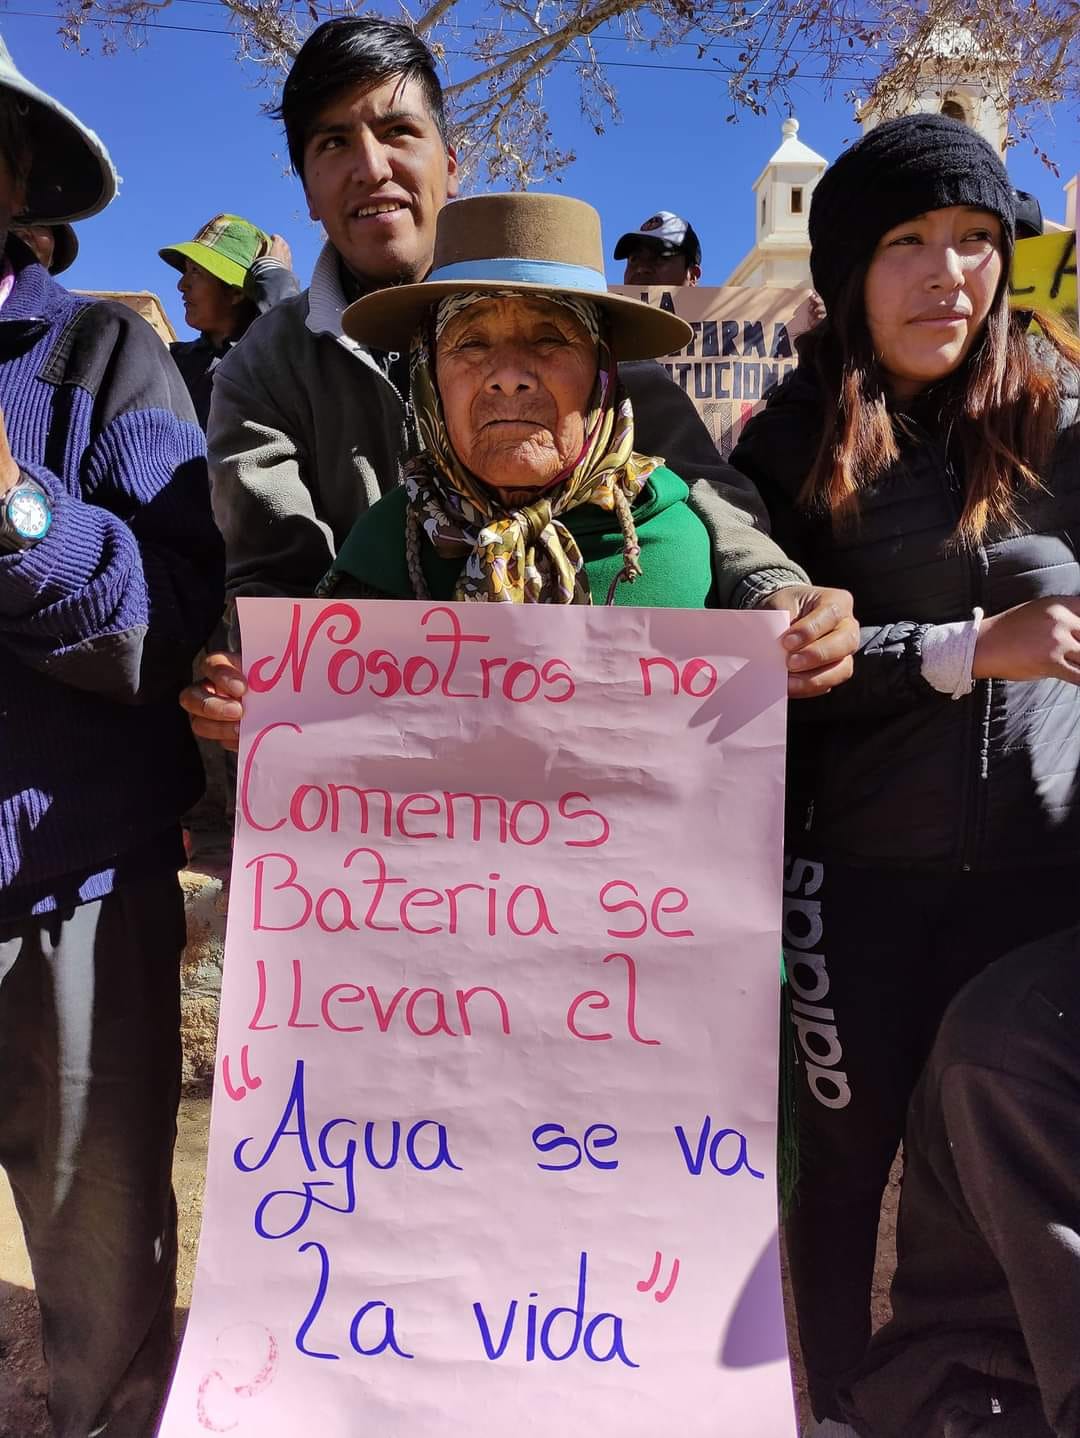 Nosotros no
Comemos
Bateria se
LLevan el
"Agua se va
La vida"
LA
adidas